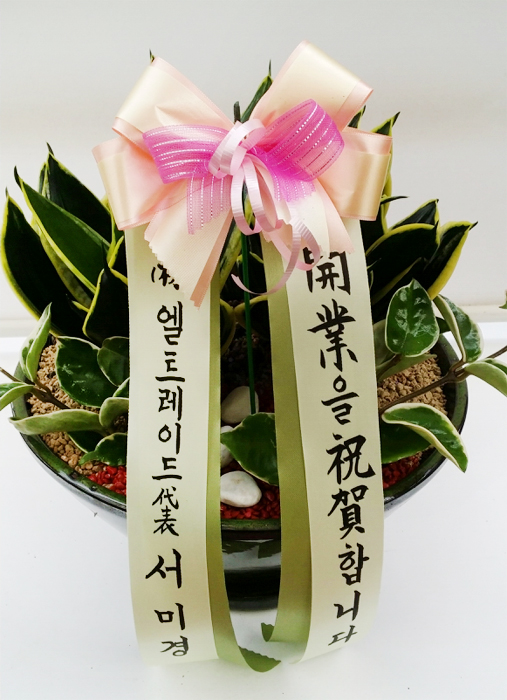 開業을祝賀합니다
엘트레이드代表 서미경